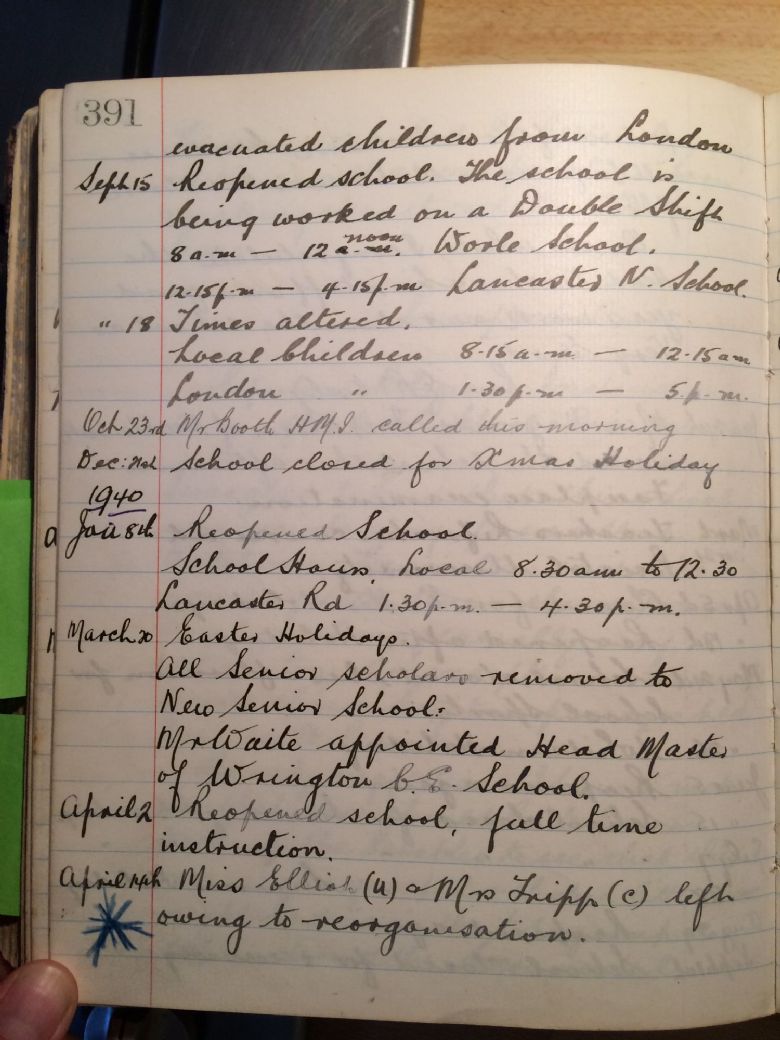 391
evacuated children from London
Sept 15 Reopened school. The school is
being worked on a Double Shift
8 a.m — 12 noon. Worle School.
12.15 p.m — 4.15 p.m Lancaster N. School.
" 18 Times altered.
Local Children 8.15 a.m. — 12.15 am
London " 1.30 p.m — 5 p.m.
Oct 23rd Mr Booth H.M.I. called this morning
Dec: 21st School closed for X'mas Holiday
1940
Jan 8th Reopened School.
School Hours, Local 8.30 am to 12.30
Lancaster Rd 1.30 p.m. — 4.30 p.m.
March 20 Easter Holidays.
All Senior scholars removed to
New Senior School:
Mr Waite appointed Head Master
of Wrington C.E. School.
April 2 Reopened school, full time
instruction.
April 14th Miss Elliot (U) & Mrs Tripp (C) left
owing to reorganisation.